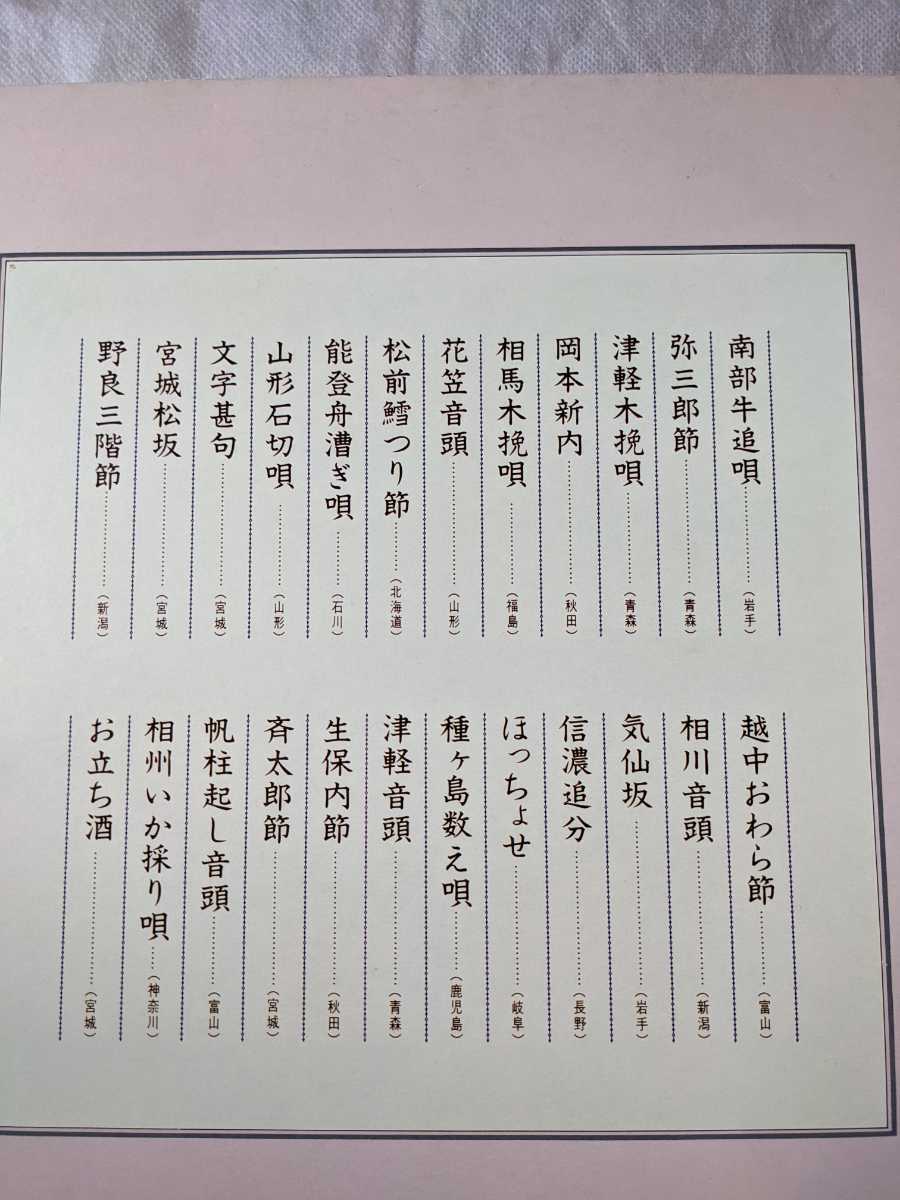 南部牛追唄…………(岩手)
弥三郎節…………(青森)
津軽木挽唄…………(青森)
岡本新内…………(秋田)
相馬木挽唄…………(福島)
花笠音頭…………(山形)
松前鱈つり節…………(北海道)
能登舟漕ぎ唄…………(石川)
山形石切唄…………(山形)
文字甚句…………(宮城)
宮城松坂…………(宮城)
野良三階節…………(新潟)
越中おわら節…………(富山)
相川音頭…………(新潟)
気仙坂…………(岩手)
信濃追分…………(長野)
ほっちょせ…………(岐阜)
種ヶ島数え唄…………(鹿児島)
津軽音頭…………(青森)
生保内節…………(秋田)
斉太郎節…………(宮城)
帆柱起し音頭…………(富山)
相州いか採り唄……(神奈川)
お立ち酒…………(宮城)